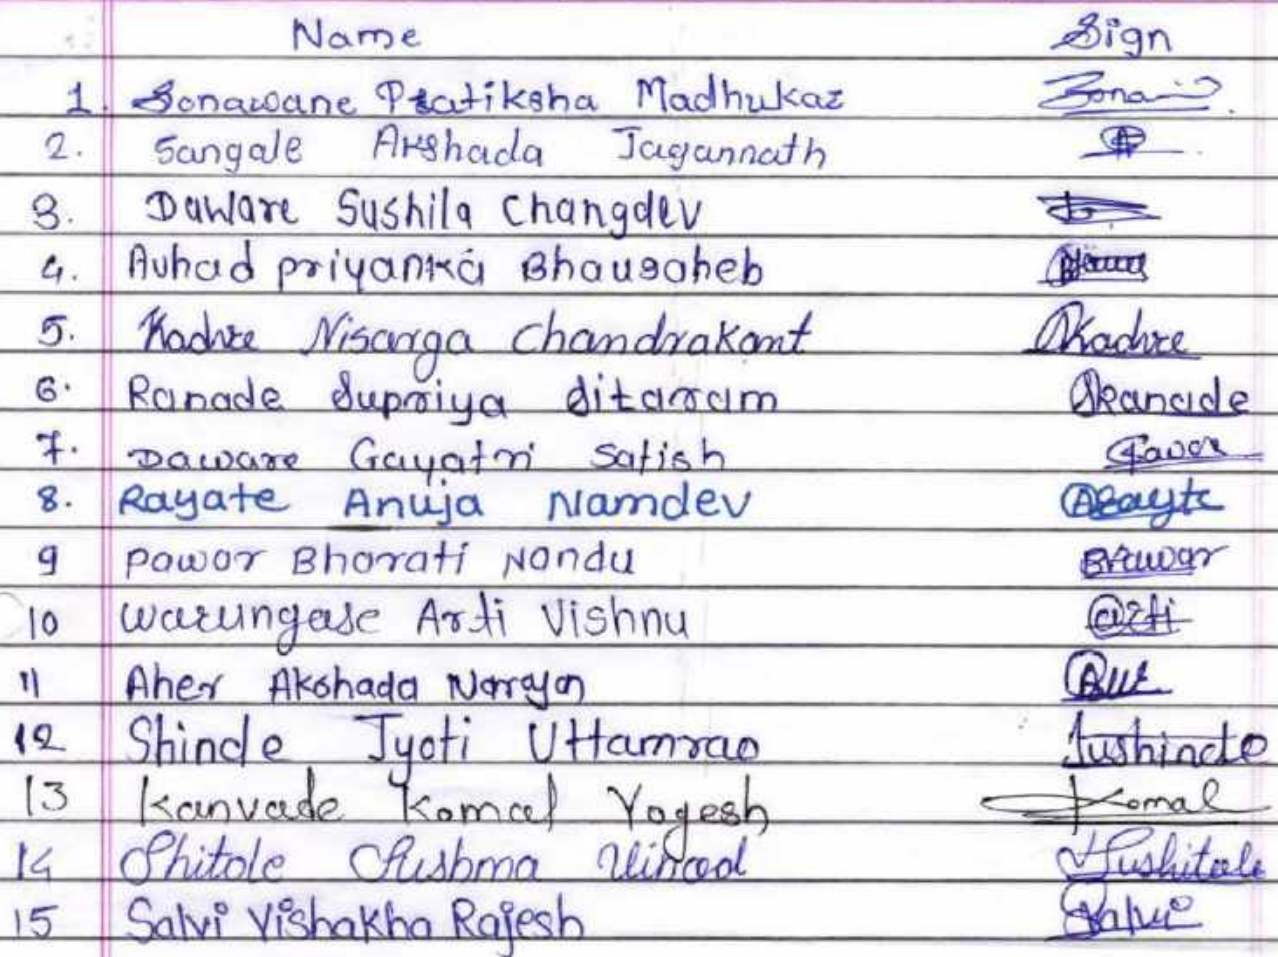 Name Sign
1. Sonawane Pratiksha Madhukar Sona
2. Sangale Akshada Jagannath
3. Daware Sushila Changdev
4. Avhad priyanka Bhausaheb
5. Kadve Nisarga Chandrakant Kadve
6. Ranade Supriya Sitaram SRanade
7. Daware Gayatri Satish
8. Rayate Anuja Namdev ARayte
9 Pawar Bharati Nandu BPawar
10 Warungase Arti Vishnu Arti
11 Aher Akshada Narayan
12 Shinde Jyoti Uttamrao Jushinde
13 Kanvade Komal Yogesh Komal
14 Shitole Sushma Vinod Sushitole
15 Salvi Vishakha Rajesh Salvi